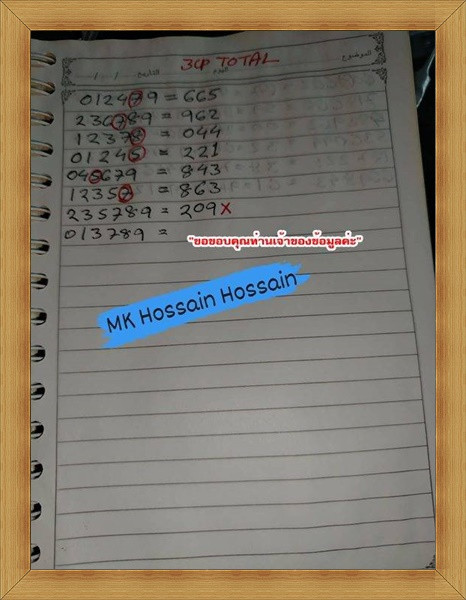 3CP TOTAL
الموضوع
اليوم
التاريخ / /
012479 = 665
236789 = 962
12378 = 044
01245 = 221
045679 = 843
12357 = 863
235789 = 209 X
013789 =
"ขอขอบคุณท่านเจ้าของข้อมูลค่ะ"
MK Hossain Hossain